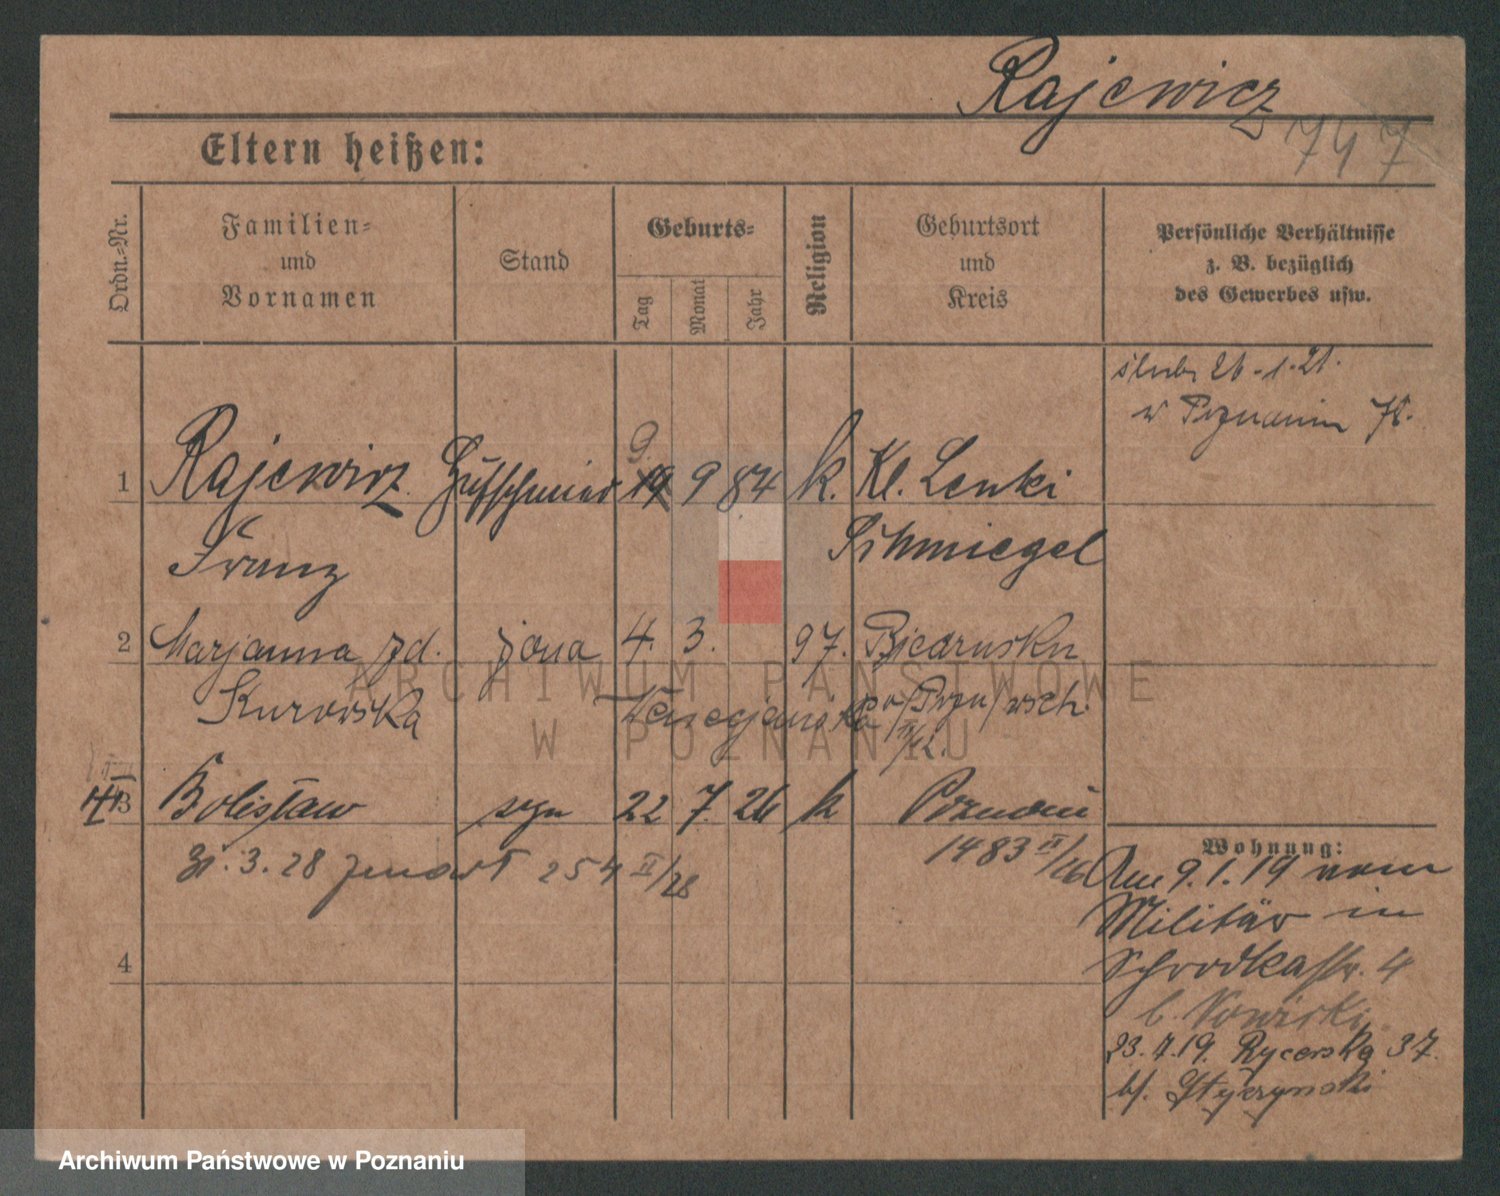 Rajewicz
747
Eltern heißen:
Ordn.-Nr.
Familien-
und
Vornamen
Stand
Geburts-
Tag
Monat
Jahr
Religion
Geburtsort
und
Kreis
Persönliche Verhältnisse
z. B. bezüglich
des Gewerbes usw.
ślub 26.1.21.
w Poznaniu
1 Rajewicz Hufschmied 19 9. 9 84 k. Kl. Lenki
Franz Schmiegel
2 Marjanna zd. żona 4. 3. 97. Biedrusku
Kurowska po/Pozn/wsch.
3 Bolesław syn 22 7. 26 k Poznań
1483 II/26
3. 28 254 II/28
4
Wohnung:
Am 9.1.19 vom
Militär in
Schrodkastr. 4
b. Nowicki
23.7.19. Rycerska 37.
b/. Styczynski
ARCHIWUM PAŃSTWOWE
W POZNANIU
Archiwum Państwowe w Poznaniu